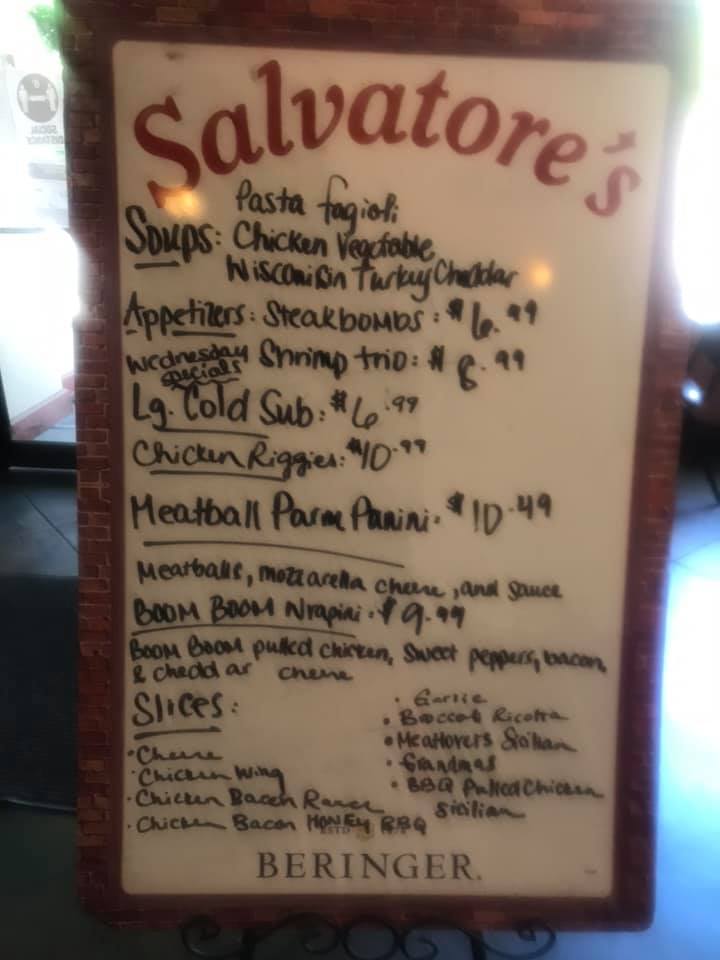 Salvatore's
Pasta fagioli
Soups: Chicken Vegetable
Wisconsin Turkey Cheddar
Appetizers: Steakbombs: $6.99
Wednesday specials
Shrimp trio: $8.99
Lg. Cold Sub: $6.99
Chicken Riggies: $10.99
Meatball Parm Panini: $10.49
Meatballs, mozzarella cheese, and sauce
BOOM BOOM Wrapini: $9.99
BOOM BOOM pulled chicken, sweet peppers, bacon,
& cheddar cheese
Slices:
• Cheese
• Chicken Wing
• Chicken Bacon Ranch
• Chicken Bacon HONEY BBQ
• Garlic
• Broccoli Ricotta
• Meatlovers Sicilian
• Grandmas
• BBQ Pulled Chicken
Sicilian
BERINGER.
SOCIAL
DISTANCE